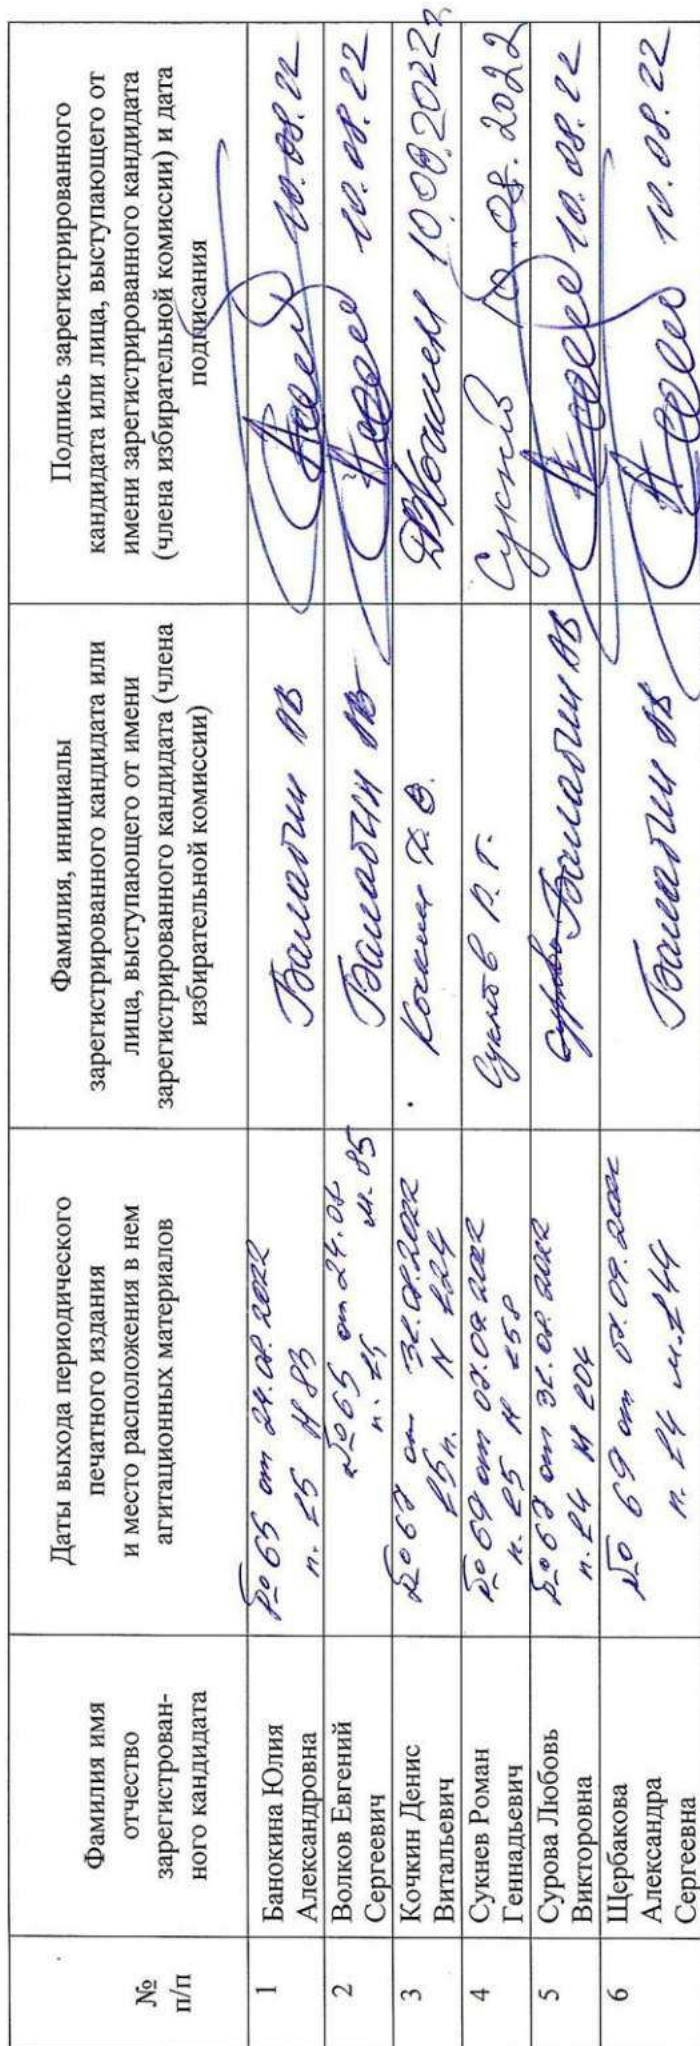 №
п/п
Фамилия имя
отчество
зарегистрирован-
ного кандидата
Даты выхода периодического
печатного издания
и место расположения в нем
агитационных материалов
Фамилия, инициалы
зарегистрированного кандидата или
лица, выступающего от имени
зарегистрированного кандидата (члена
избирательной комиссии)
Подпись зарегистрированного
кандидата или лица, выступающего от
имени зарегистрированного кандидата
(члена избирательной комиссии) и дата
подписания
1
Банокина Юлия
Александровна
№ 65 от 24.08.2022
п. 15 М 83
Балабин АВ
10.08.22
2
Волков Евгений
Сергеевич
№ 65 от 24.08
п. 15 м. 85
Балабин АВ
10.08.22
3
Кочкин Денис
Витальевич
№ 67 от 31.08.2022
15 п. N 124
Кочкин Д.В.
10.08.2022г
4
Сукнев Роман
Геннадьевич
№ 69 от 07.09.2022
п. 15 М 158
Сукнев Р.Г.
Сукнев 10.08.2022
5
Сурова Любовь
Викторовна
№ 67 от 31.08.2022
п. 14 М 104
Балабин АВ
10.08.22
6
Щербакова
Александра
Сергеевна
№ 69 от 07.09.2022
п. 14 м. 144
Балабин АВ
10.08.22